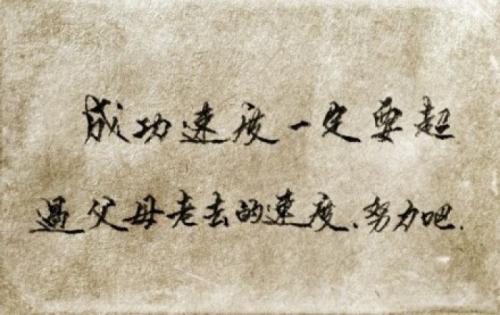 成功速度一定要超
过父母老去的速度、努力吧.